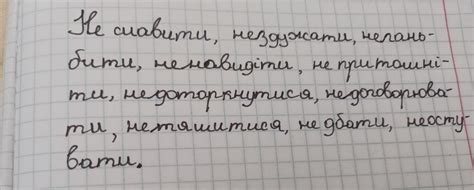 Не славити, нездужати, негань-
бити, ненавидіти, не притомні-
ти, недоторкнутися, недоговорюва-
ти, нетямитися, не дбати, неосту-
вати.